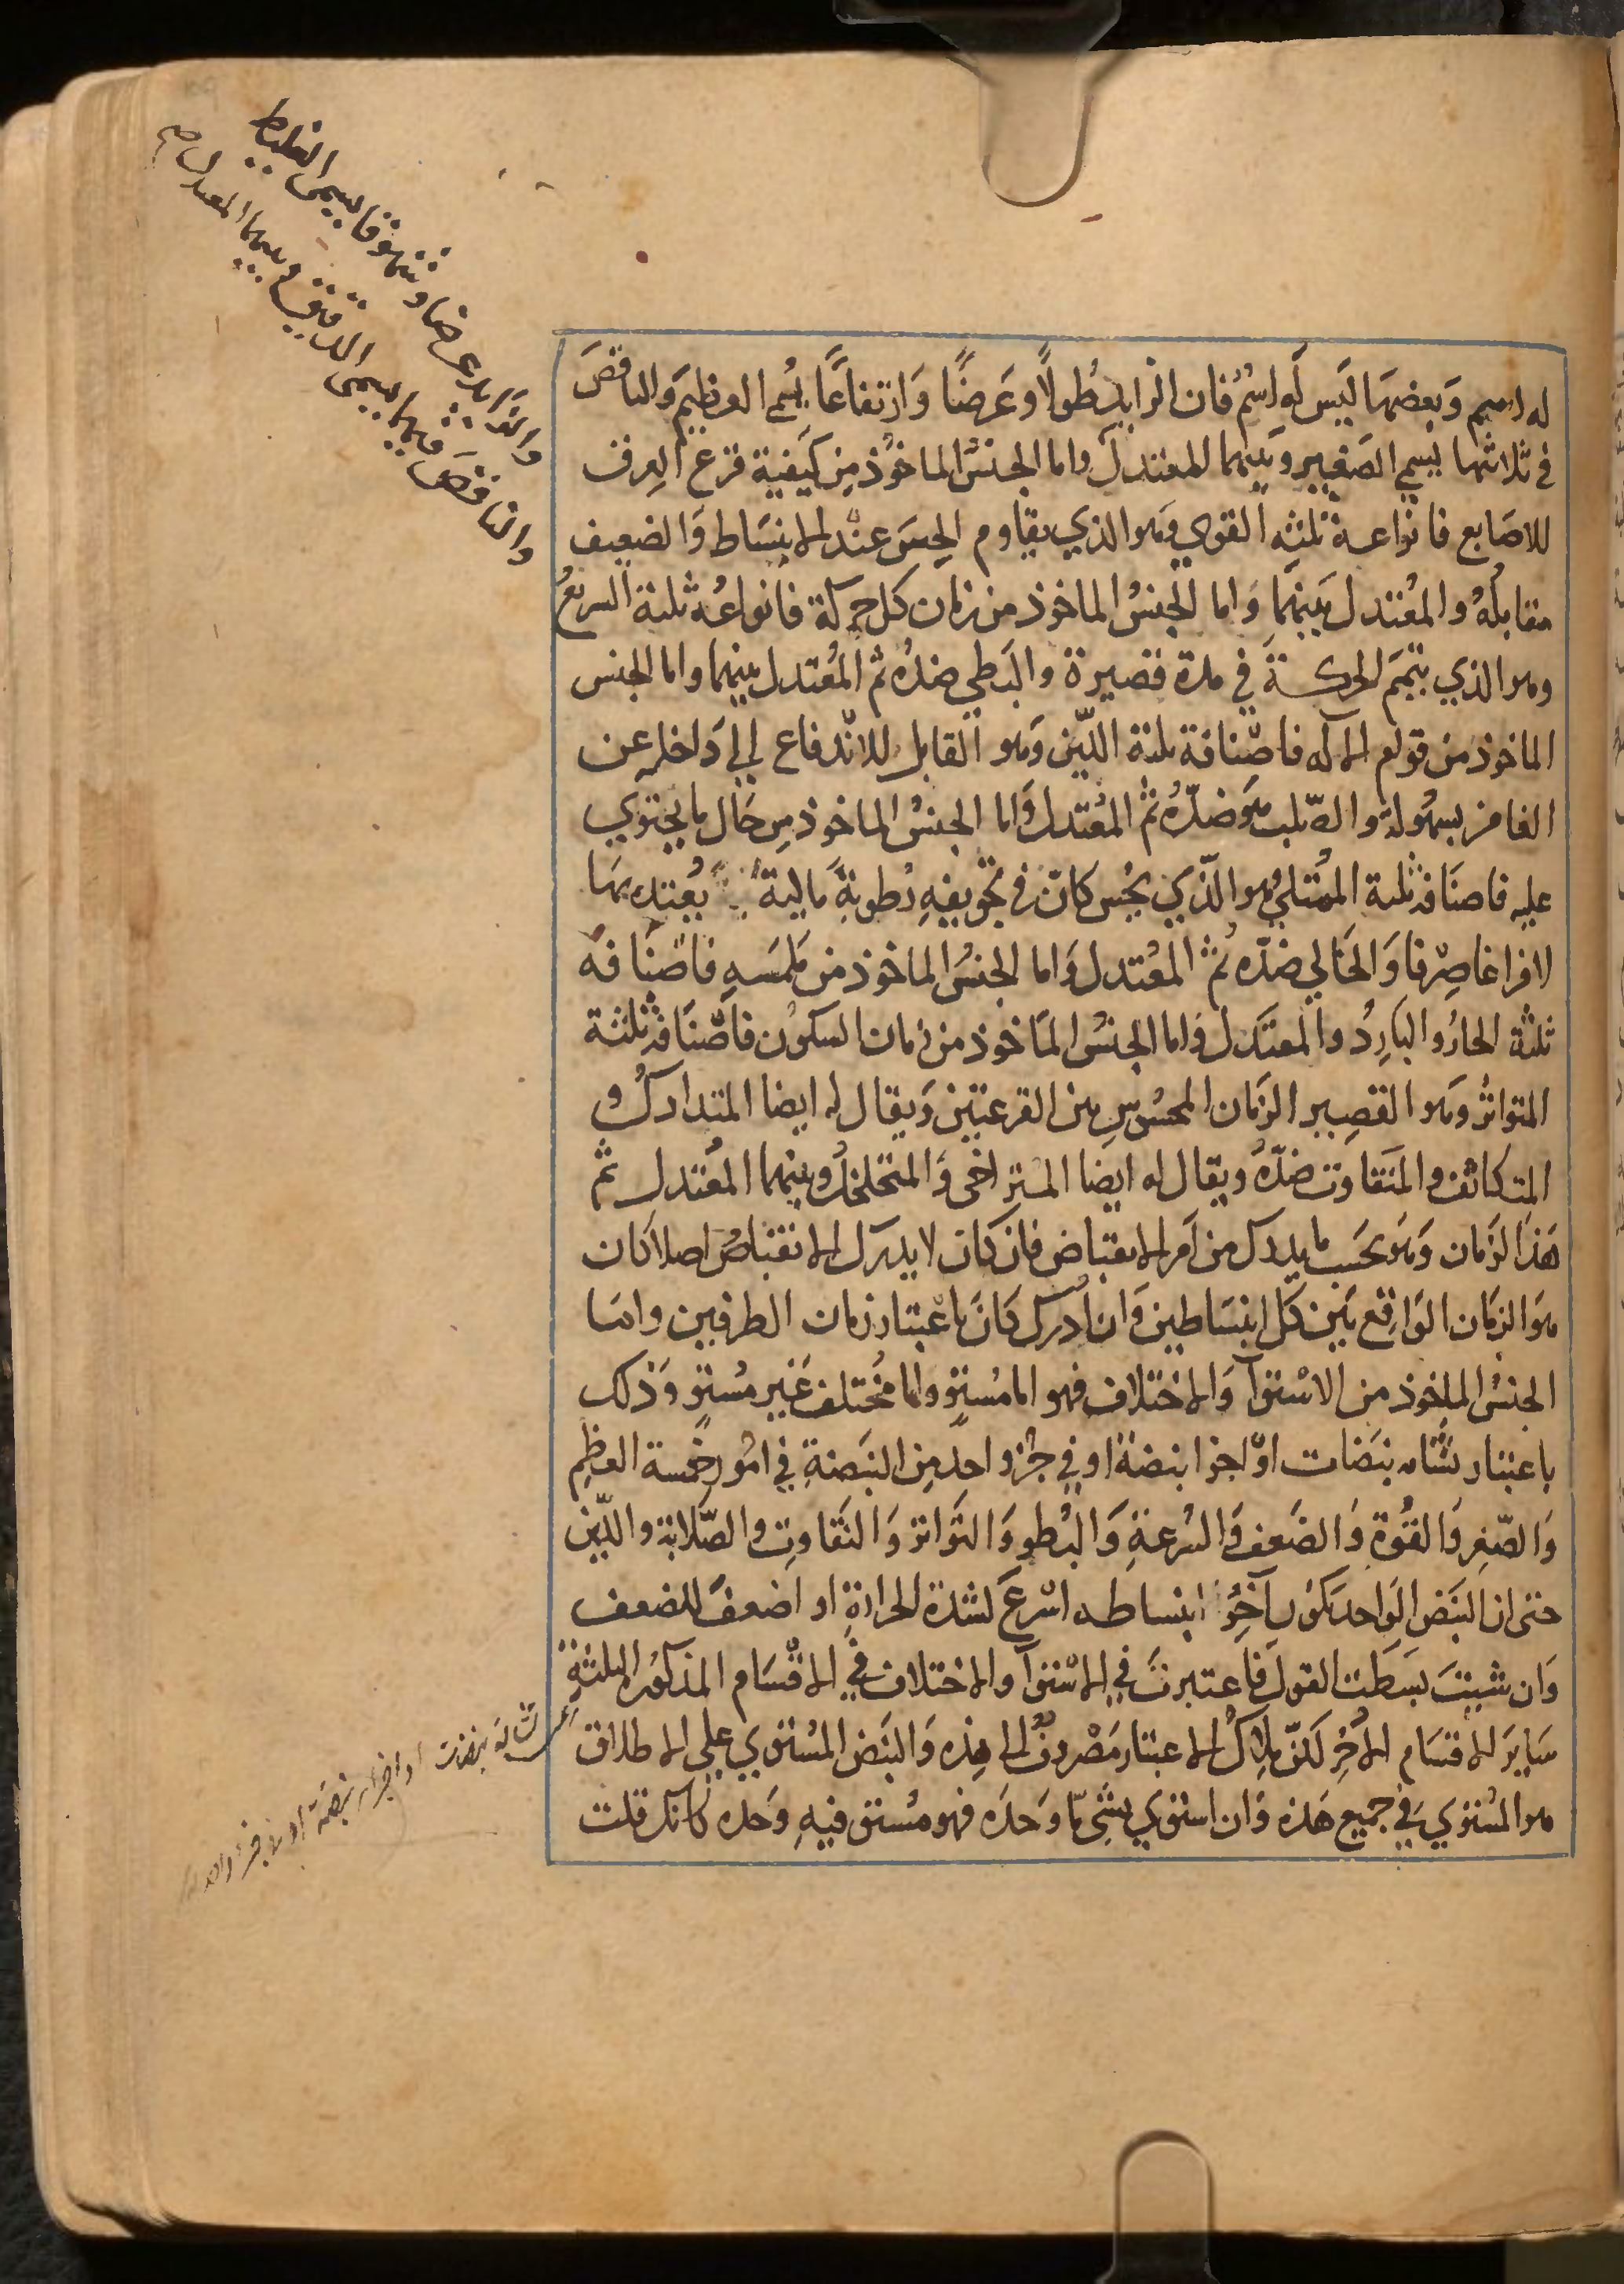 له اسم وَبعضهَا لَيس لَه اِسْمٌ فان الزايد طُولًا وعَرضًا وَارتفاعًا يسُمى العظيم وَالناقصَ
في ثلاثتها يُسمى الصَغيِر وَبينهما المعتدل واما الجنسُ الماخوذ مِن كيَفية قرع العِرق
للاصَابع فانواعه ثلثه القوي وَهو الذي يقاوم الحِسَ عنْد الانبسَاط وَالضعيف
مقابلُهُ والمعُتدل بَينهمَا وَاما الجنسُ الماخوذ من زمان كل حركة فانواعُه ثلثة السريعُ
وهو الذي يتمِّم الحركةَ في مدة قصيرة والبَطي ضدُه ثم المُعتدل بينهما واما الجنس
الماخوذ من قوام الاله فاصْنافة ثلثة اللّين وَهو القابل للانْدفاع الي دَاخله عن
الغامز بسهُولة والصّلب هوَ ضدّهُ ثم المُعْتدل وَاما الجنسُ الماخوذ مِن حَال ما يحتوي
عليه فاصنَافه ثلثة الممُتلي وهو الذّي يحُس كان في تجويفهِ رُطوبةً مَالية يُعتد بهَا
لا فراغا صِرْفا وَالخَالي ضدّه ثم المعُتدل وَاما الجنسُ الماخوذ من مَلمَسهِ فاصْنَافه
ثلثة الحارُ والبارِدُ والمعتَدل وَاما الجنسُ المَاخوذ من زمان السكوُن فاصّنَافه ثلثة
المتواترُ وَهو القصِير الزَمان المحسُوس بين القرعتين وَيقال له ايضا المتدارك و
المتكاثف والمتَفاوت ضدّهُ ويقال له ايضا المتراخي وَالمتخلخل وبينهما المعُتدل ثم
هَذا الزَمان وَهوَ بحَسب ما يدرك من اَمر الانقبَاض فان كان لا يدرك الانقباضُ اصلا كان
هوَ الزمَان الوَاقِع بَين كل انبسَاطين وَان اُدرك كانَ باعْتبار زمان الطرفين وامَا
الجنسُ الماخوذ من الاسْتوآ وَالاختلاف فهو اما مُستوٍ واما مخُتلف غَير مُستوٍ وَذلك
باعتبار تشَابه نبَضات او اجزا نبضة او في جزُو واحد مِن النبَضةِ في امُور خمسة العظِم
وَالصّغِر وَالقُوَّة وَالضَعف وَالسُرعَةِ وَالبُطو وَالتَواتر وَالتَفاوتِ والصّلابة واللّين
حتى ان النبَضَ الوَاحد يَكوُن آخِرُ انبساطه اسْرعَ لشدة الحرارَةِ او اضعفَ للضعف
وَان شيتَ بسَطت القول فاعتبرتَ في الاسْتوآ والاختلاف في الاقْسَام المذكورُه الثلثةِ
سَايرَ الاقسَام الاُخِر لكنّ مِلاكُ الاعتبار مَصْروفٌ الى هذه وَالنبَض المُستوي على الاطلاق
هو المُستوي في جميع هَذه وَان استوي بشِئ مَّا وَحدَه فهو مُستو فيهِ وَحده كانك قلت
والزايد عرضا وشهوقا يسمى الغليظ
والناقص فيهما يسمى الدقيق وبينهما المعتدل صح
تشابه نبضات او اجزاء نبضة او في جزء واحد